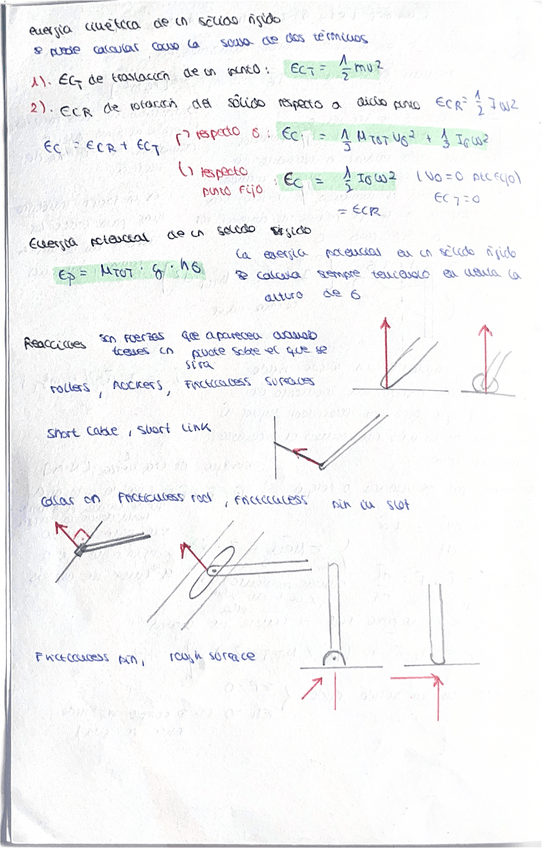 energía cinética de un sólido rígido
se puede calcular como la suma de dos términos
1). ECT de traslación de un punto: ECT = 1/2 mv²
2). ECR de rotación del sólido respecto a dicho punto ECR = 1/2 I ω²
EC = ECR + ECT
respecto G: EC = 1/2 MTOT VG² + 1/2 IG ω²
respecto punto fijo: EC = 1/2 I0 ω² (V0 = 0
ECT = 0
= ECR
Energía potencial de un sólido rígido
EP = MTOT · g · hG
La energía potencial en un sólido rígido
se calcula siempre teniendo en cuenta la
altura de G
Reacciones son fuerzas que aparecen cuando
un punto sobre el que se
gira
rollers, rockers, frictionless surfaces
short cable, short link
collar on frictionless rod, frictionless pin in slot
Frictionless pin, rough surface